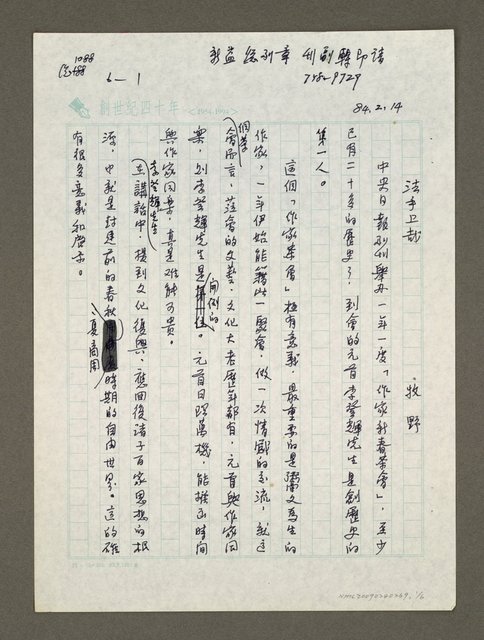 新益 綜副章 刊副轉印請
7582-9729
84.2.14
6-1
創世紀四十年 <1954-1994>
法乎上哉
牧野
中央日報副刊舉辦一年一度「作家新春茶會」,至少
已有二十多的歷史了,到會的元首李登輝先生是創歷史的
第一人。
這個「作家茶會」極有意義,最重要的是鬻文為生的
作家,一年伊始能藉此一聚會,做一次情感的交流,就這
個茶會而言,蒞會的文藝、文化大老歷年都有,元首與作家同
樂,則李登輝先生是開例的。元首日理萬機,能撥出時間
與作家同樂,真是難能可貴。
李登輝先生在講話中,提到文化復興,應回復諸子百家思想的根
源,也就是封建前的春秋夏商周時期的自由世界。這的確
有很多意義和啓示。
NMTL20090280269, 1/6